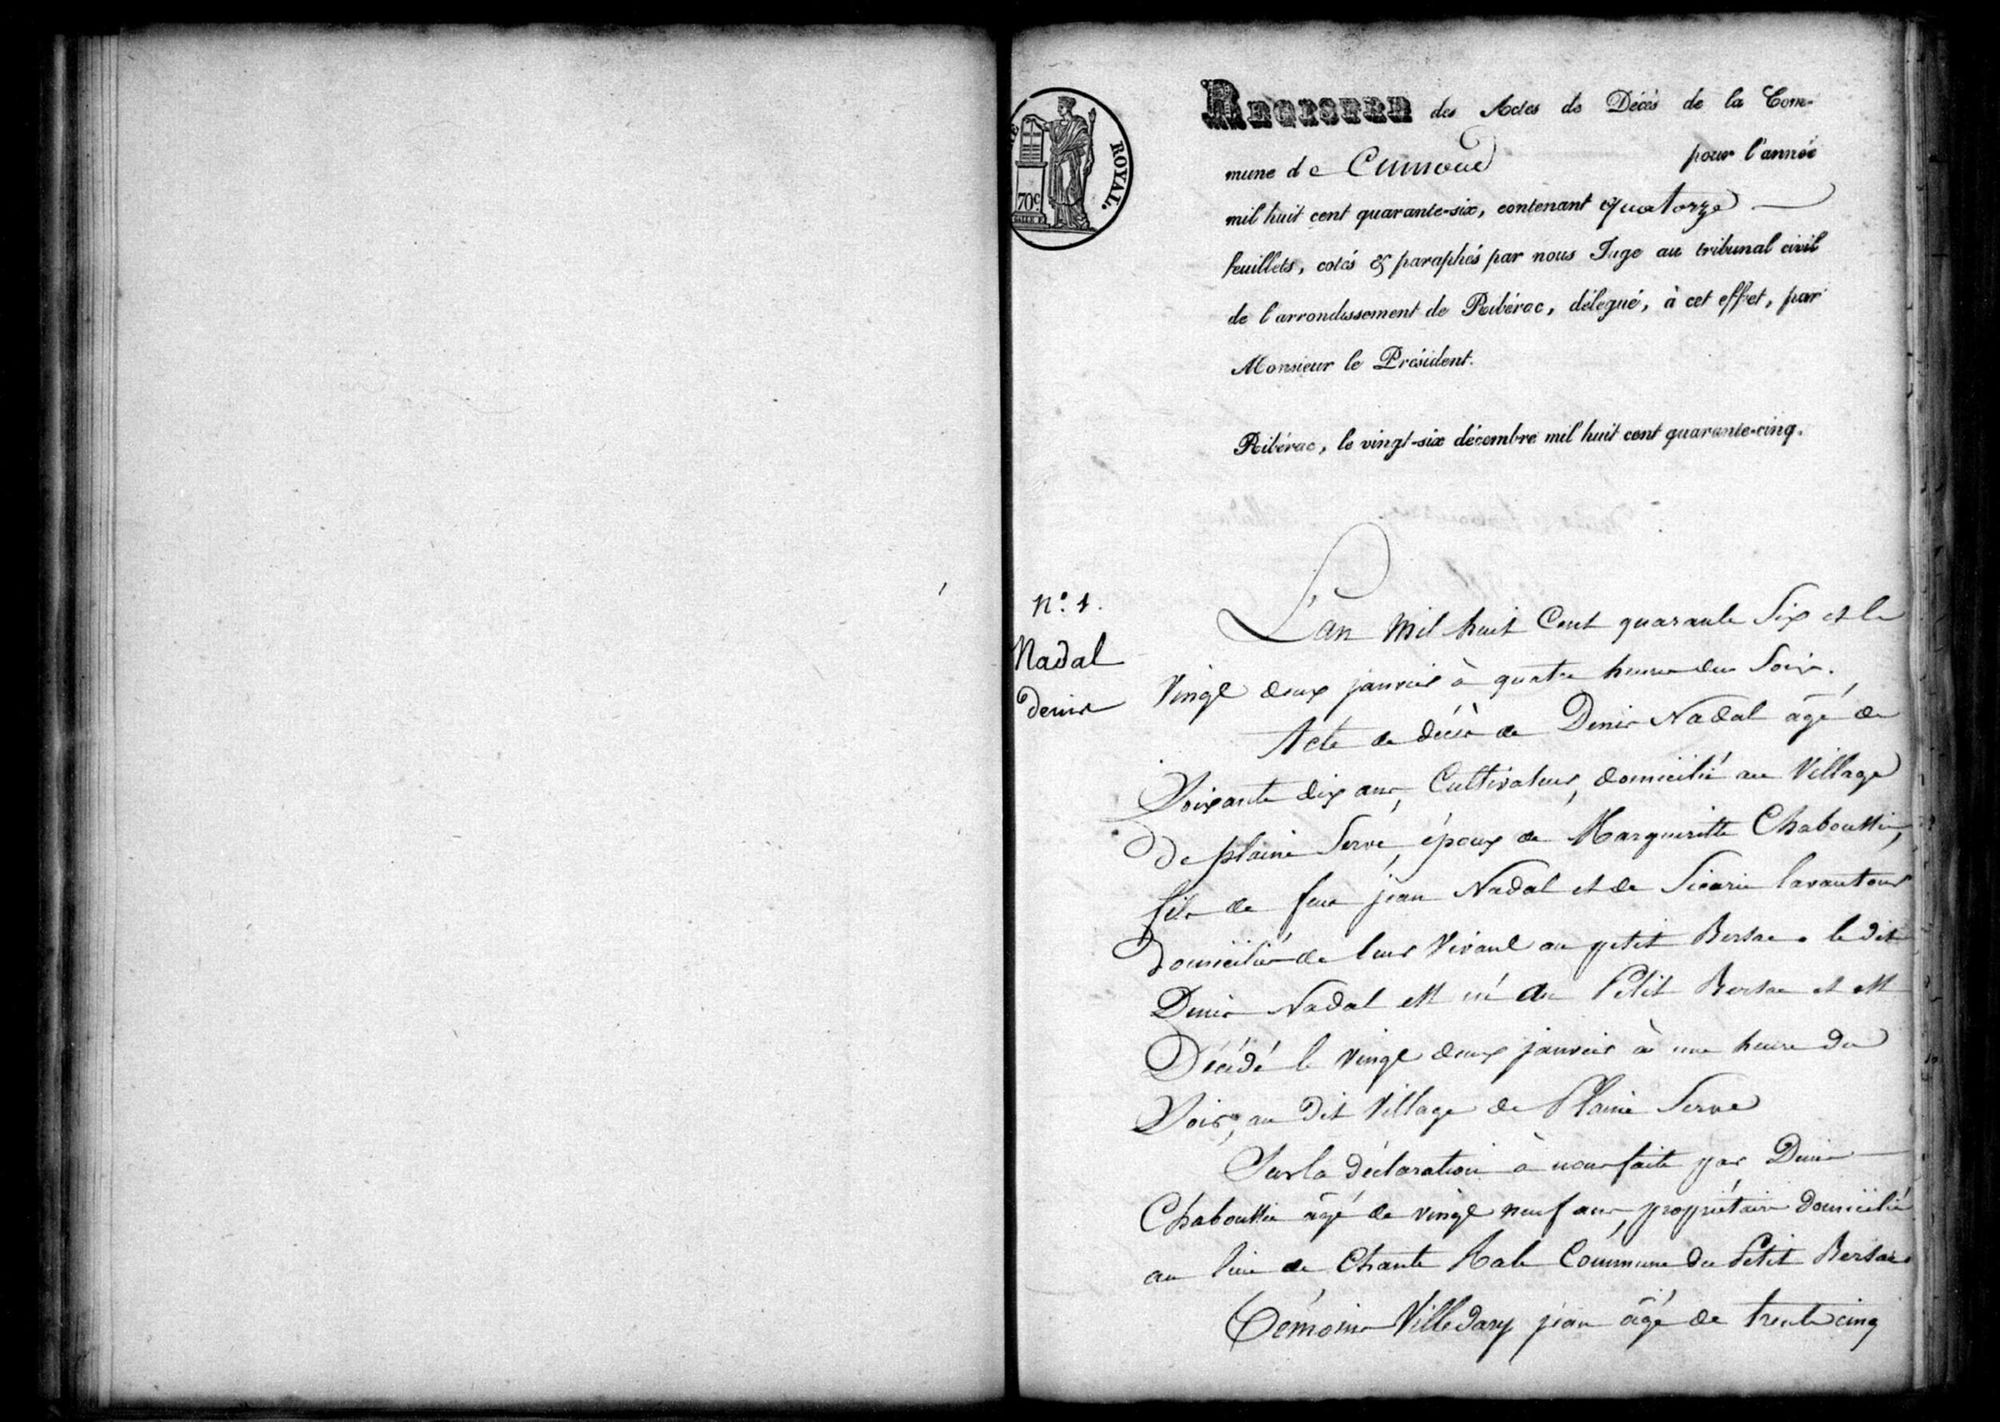 REGISTRE des Actes de Décès de la Com-
mune de Cumond pour l'année
mil huit cent quarante-six, contenant quatorze
feuillets, cotés & paraphés par nous Juge au tribunal civil
de l'arrondissement de Ribérac, délégué, à cet effet, par
Monsieur le Président.
Ribérac, le vingt-six décembre mil huit cent quarante-cinq.
ROYAL.
70c
N.° 1.
Nadal
denis
L'an mil huit Cent quarante Six et le
Vingt deux janvier à quatre heures du Soir.
Acte de décès de Denis Nadal âgé de
Soixante dix ans, Cultivateur, domicilié au Village
De plaine Serve, époux de Margueritte Chaboussie,
fils de feu jean Nadal et de Sicarie Lavautour
Domiciliés de leur Vivant au petit Bersac. le dit
Denis Nadal est né au Petit Bersac et est
Décédé le Vingt deux janvier à une heure du
Soir, au dit Village de Plaine Serve
Sur la déclaration à nous faite par Denis
Chaboussie âgé de vingt neuf ans, propriétaire domicilié
au lieu de Chante Commune du Petit Bersac.
Témoins Villedary jean âgé de trente cinq